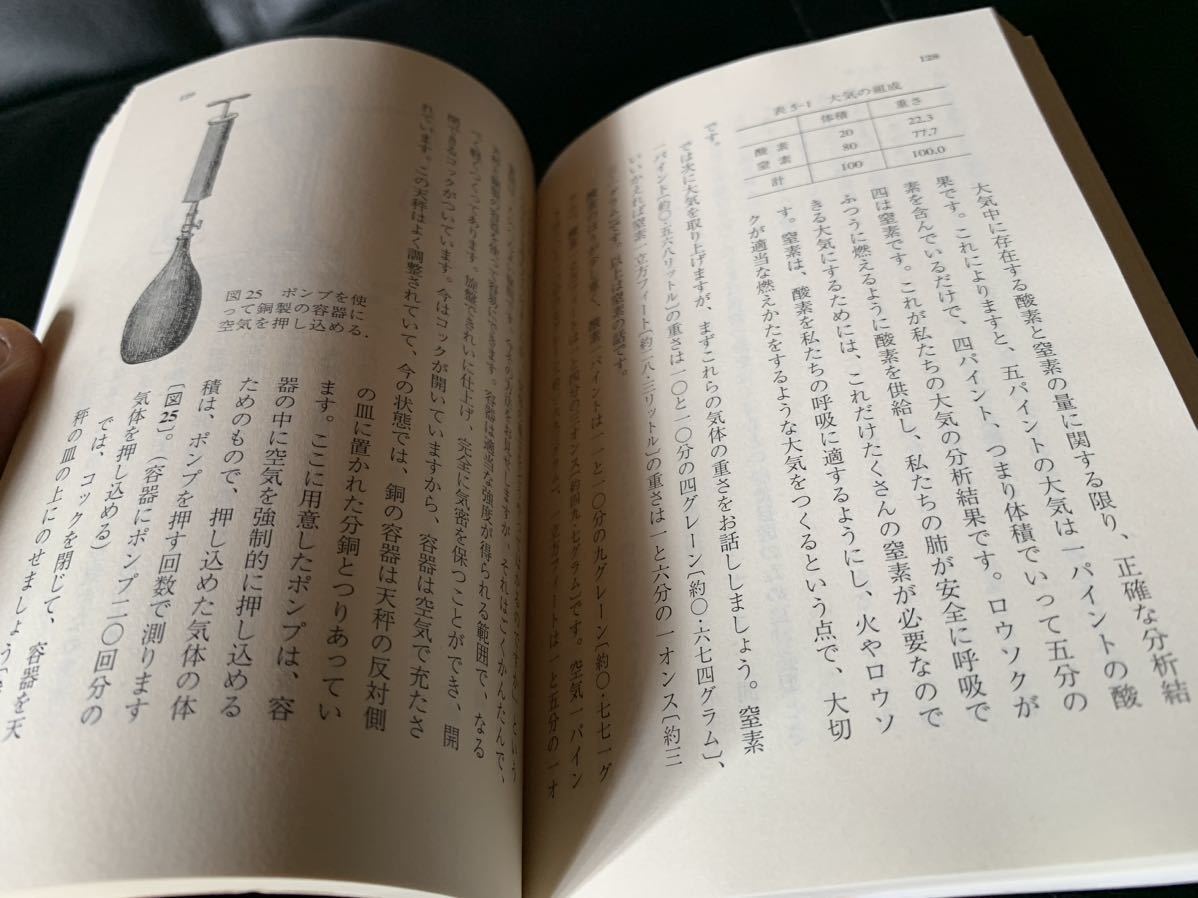 128
表5-1 大気の組成
体積 重さ
酸素 20 22.3
窒素 80 77.7
計 100 100.0
大気中に存在する酸素と窒素の量に関する限り、正確な分析結
果です。これによりますと、五パイントの大気は一パイントの酸
素を含んでいるだけで、四パイント、つまり体積でいって五分の
四は窒素です。これが私たちの大気の分析結果です。ロウソクが
ふつうに燃えるように酸素を供給し、私たちの肺が安全に呼吸で
きる大気にするためには、これだけたくさんの窒素が必要なので
す。窒素は、酸素を私たちの呼吸に適するようにし、火やロウソ
クが適当な燃えかたをするような大気をつくるという点で、大切
です。
では次に大気を取り上げますが、まずこれらの気体の重さをお話ししましょう。窒素
一パイント〔約〇・五六八リットル〕の重さは一〇と一〇分の四グレーン〔約〇・六七四グラム〕、
いいかえれば窒素一立方フィート〔約二八・三リットル〕の重さは一と六分の一オンス〔約三
グラム〕です。以上は窒素の話です。
酸素一パイントは一一と一〇分の九グレーン〔約〇・七七一グ
です。空気一パイン
一立方フィートは一と五分の一オ
129
図25 ポンプを使
って銅製の容器に
空気を押し込める.
という
お見せしますが、それはごくかんたんで、
天秤と銅製の容器を使って容易にできます。容器は適当な強度が得られる範囲で、なる
べく軽くつくってあります。旋盤できれいに仕上げ、完全に気密を保つことができ、開
閉できるコックがついています。今はコックが開いていますから、容器は空気で充たさ
れています。この天秤はよく調整されていて、今の状態では、銅の容器は天秤の反対側
の皿に置かれた分銅とつりあってい
ます。ここに用意したポンプは、容
器の中に空気を強制的に押し込める
ためのもので、押し込めた気体の体
積は、ポンプを押す回数で測ります
〔図25〕。（容器にポンプ二〇回分の
気体を押し込める）
では、コックを閉じて、容器を天
秤の皿の上にのせましょう